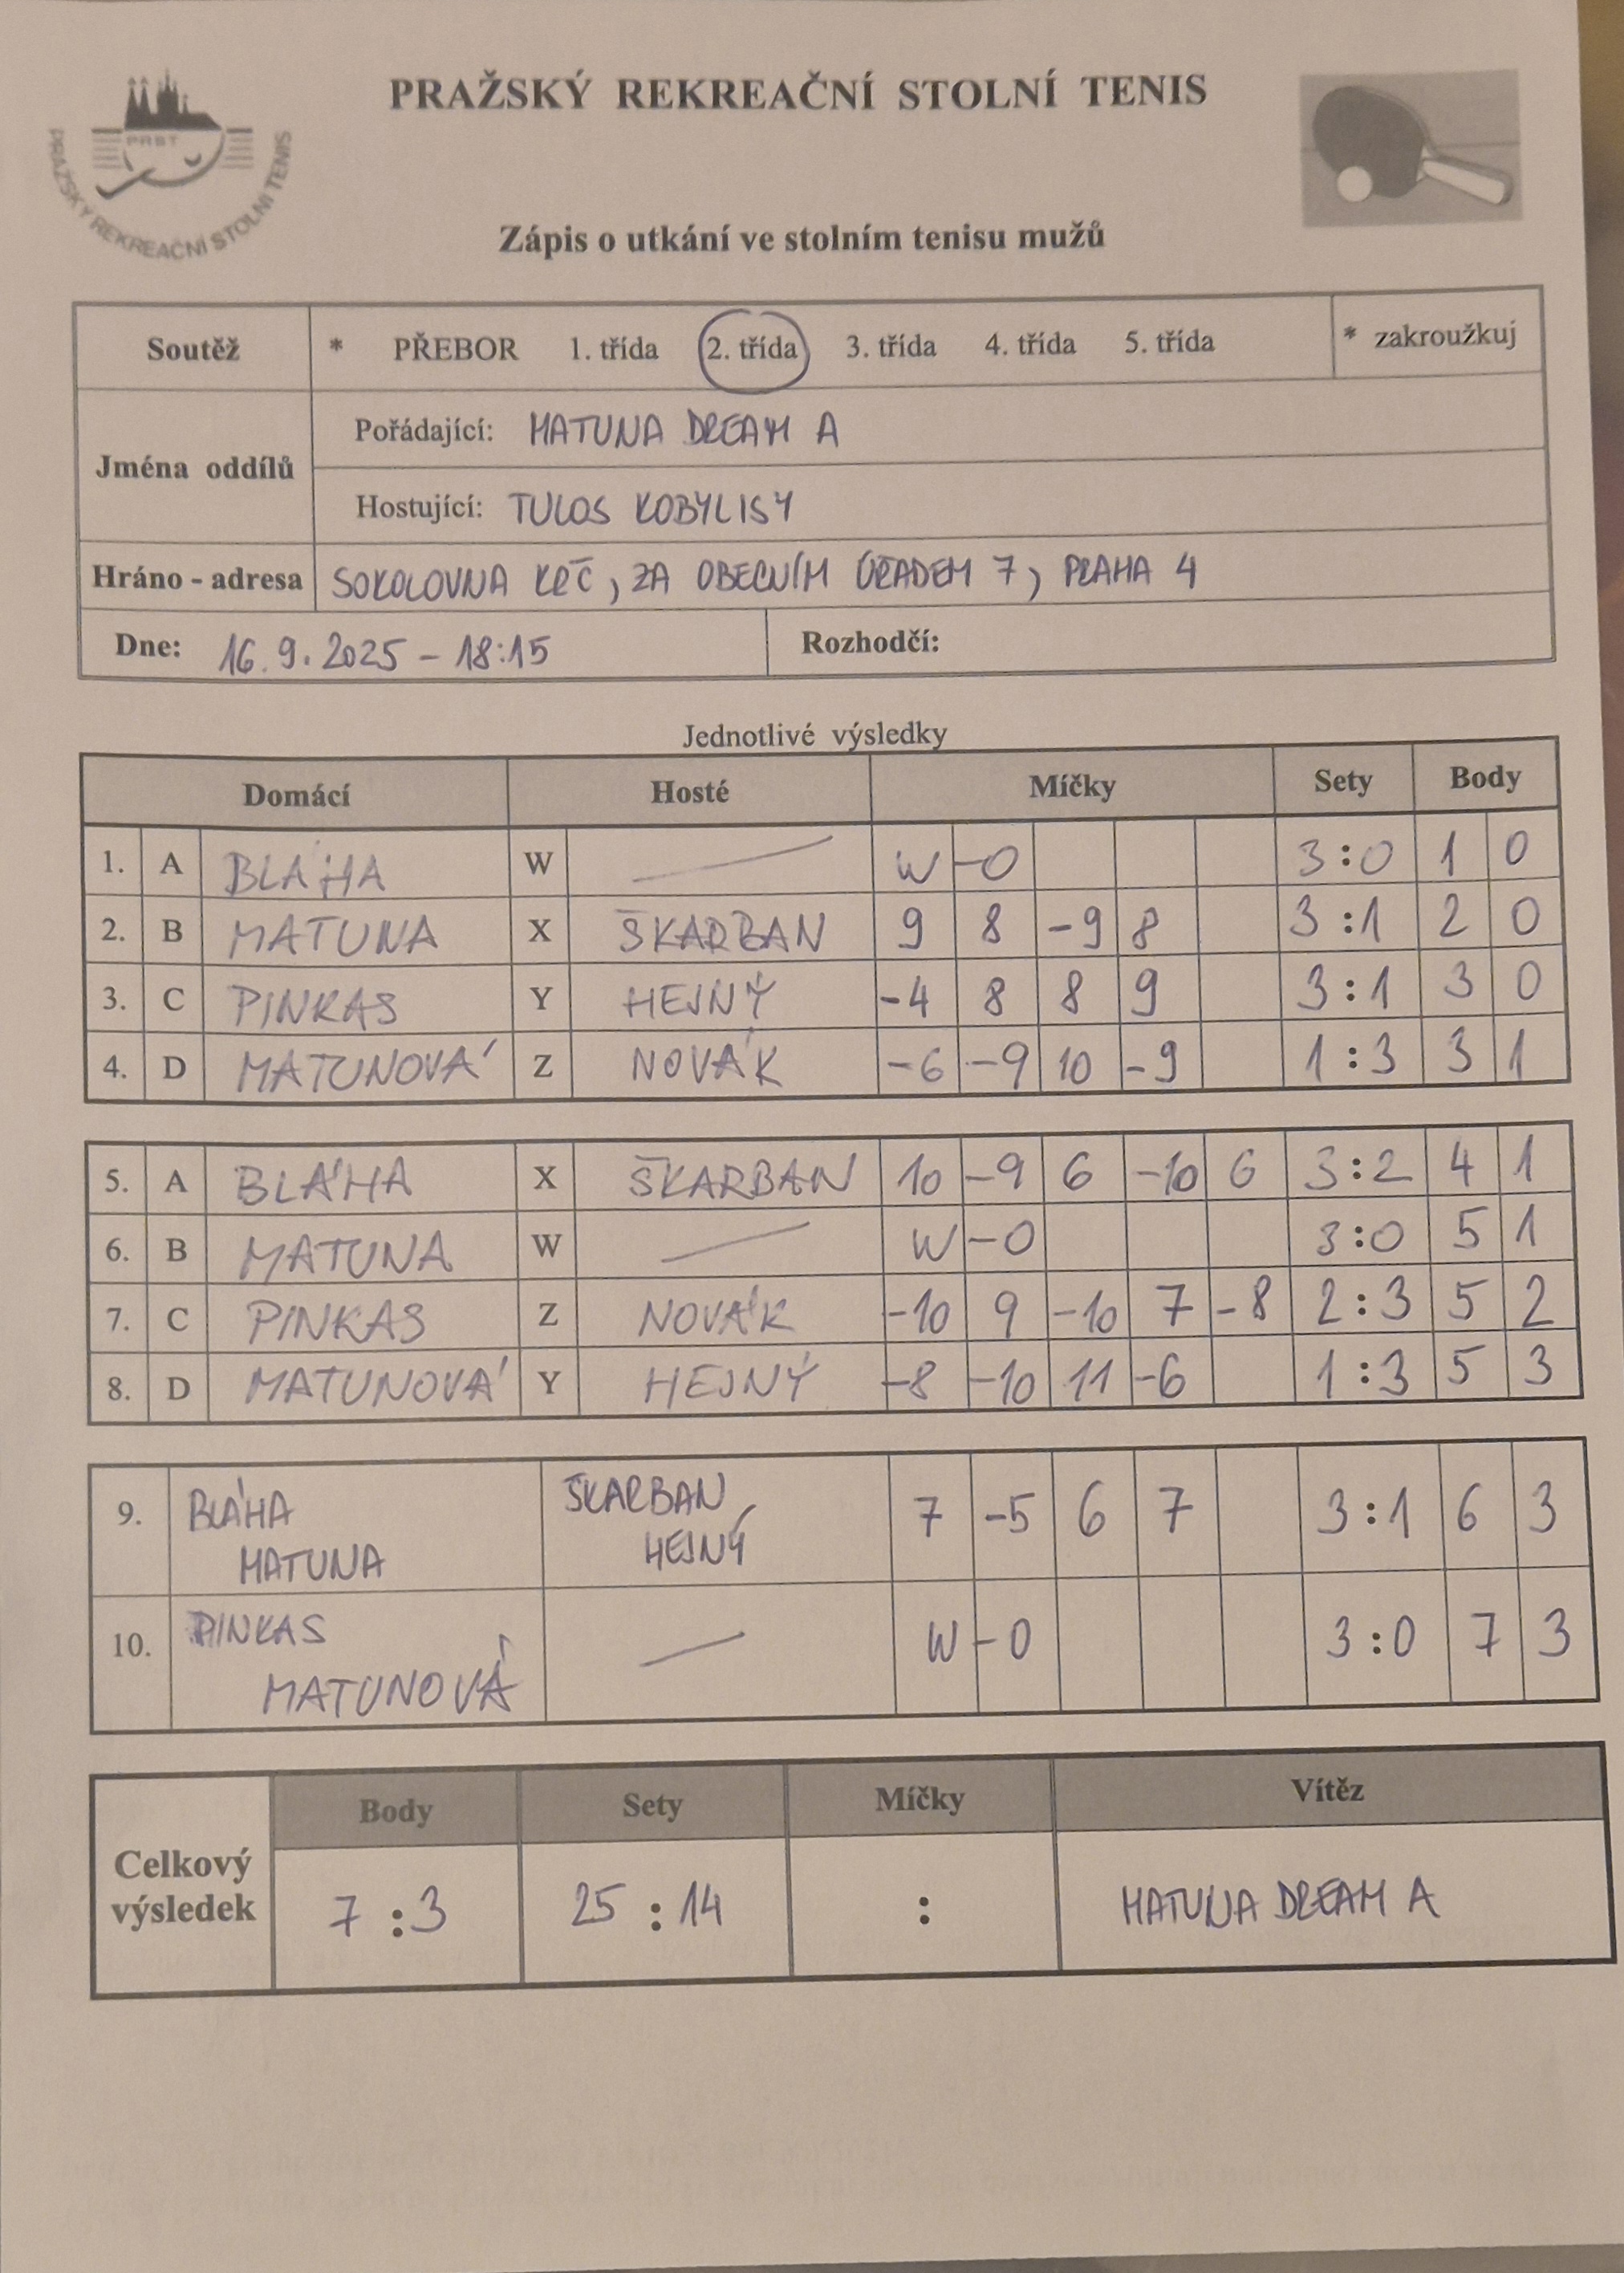 PRAŽSKÝ REKREAČNÍ STOLNÍ TENIS
PRST
PRAŽSKÝ REKREAČNÍ STOLNÍ TENIS
Zápis o utkání ve stolním tenisu mužů
Soutěž * PŘEBOR 1. třída 2. třída 3. třída 4. třída 5. třída * zakroužkuj
Jména oddílů
Pořádající: MATUNA DREAM A
Hostující: TULOS KOBYLISY
Hráno - adresa SOKOLOVNA KRČ, ZA OBECNÍM ÚŘADEM 7, PRAHA 4
Dne: 16.9.2025 - 18:15 Rozhodčí:
Jednotlivé výsledky
Domácí Hosté Míčky Sety Body
1. A BLÁHA W — W - 0 3:0 1 0
2. B MATUNA X ŠKARBAN 9 8 -9 8 3:1 2 0
3. C PINKAS Y HEJNÝ -4 8 8 9 3:1 3 0
4. D MATUNOVÁ Z NOVÁK -6 -9 10 -9 1:3 3 1
5. A BLÁHA X ŠKARBAN 10 -9 6 -10 6 3:2 4 1
6. B MATUNA W — W - 0 3:0 5 1
7. C PINKAS Z NOVÁK -10 9 -10 7 -8 2:3 5 2
8. D MATUNOVÁ Y HEJNÝ -8 -10 11 -6 1:3 5 3
9. BLÁHA ŠKARBAN 7 -5 6 7 3:1 6 3
MATUNA HEJNÝ
10. PINKAS — W - 0 3:0 7 3
MATUNOVÁ
Body Sety Míčky Vítěz
Celkový
výsledek 7:3 25:14 : MATUNA DREAM A